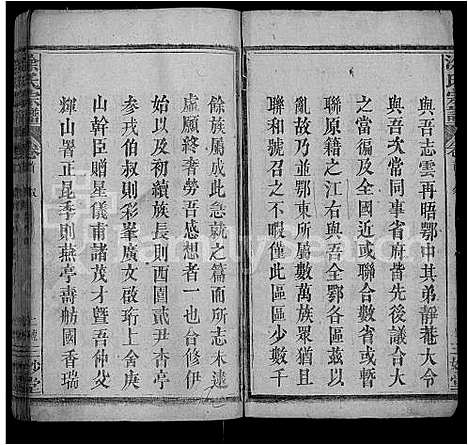 涂氏宗譜
與吾志雲再晤鄂中其弟靜菴大令
與吾次常同事省府嘗先後議合大
之當代為全國近或聯贛鄂各族以
聯原籍之江右與吾全鄂各區茲以
故乃並鄂東所屬數萬族眾猶且
聯和號召之不暇何區區少數千
餘族屬成此急就之篇而所志未逮
虛願終奢勞吾感喟者一也合修伊
始以及初續族長則西園貳尹杏亭
參戎伯叔則彩峯廣文啟珩上舍青
山幹臣贈星儀甫諸茂才暨吾仲父
輝山署正昆季則燕亭壽舫國香瑞
涂氏宗譜
卷首
三妙堂
familysearch